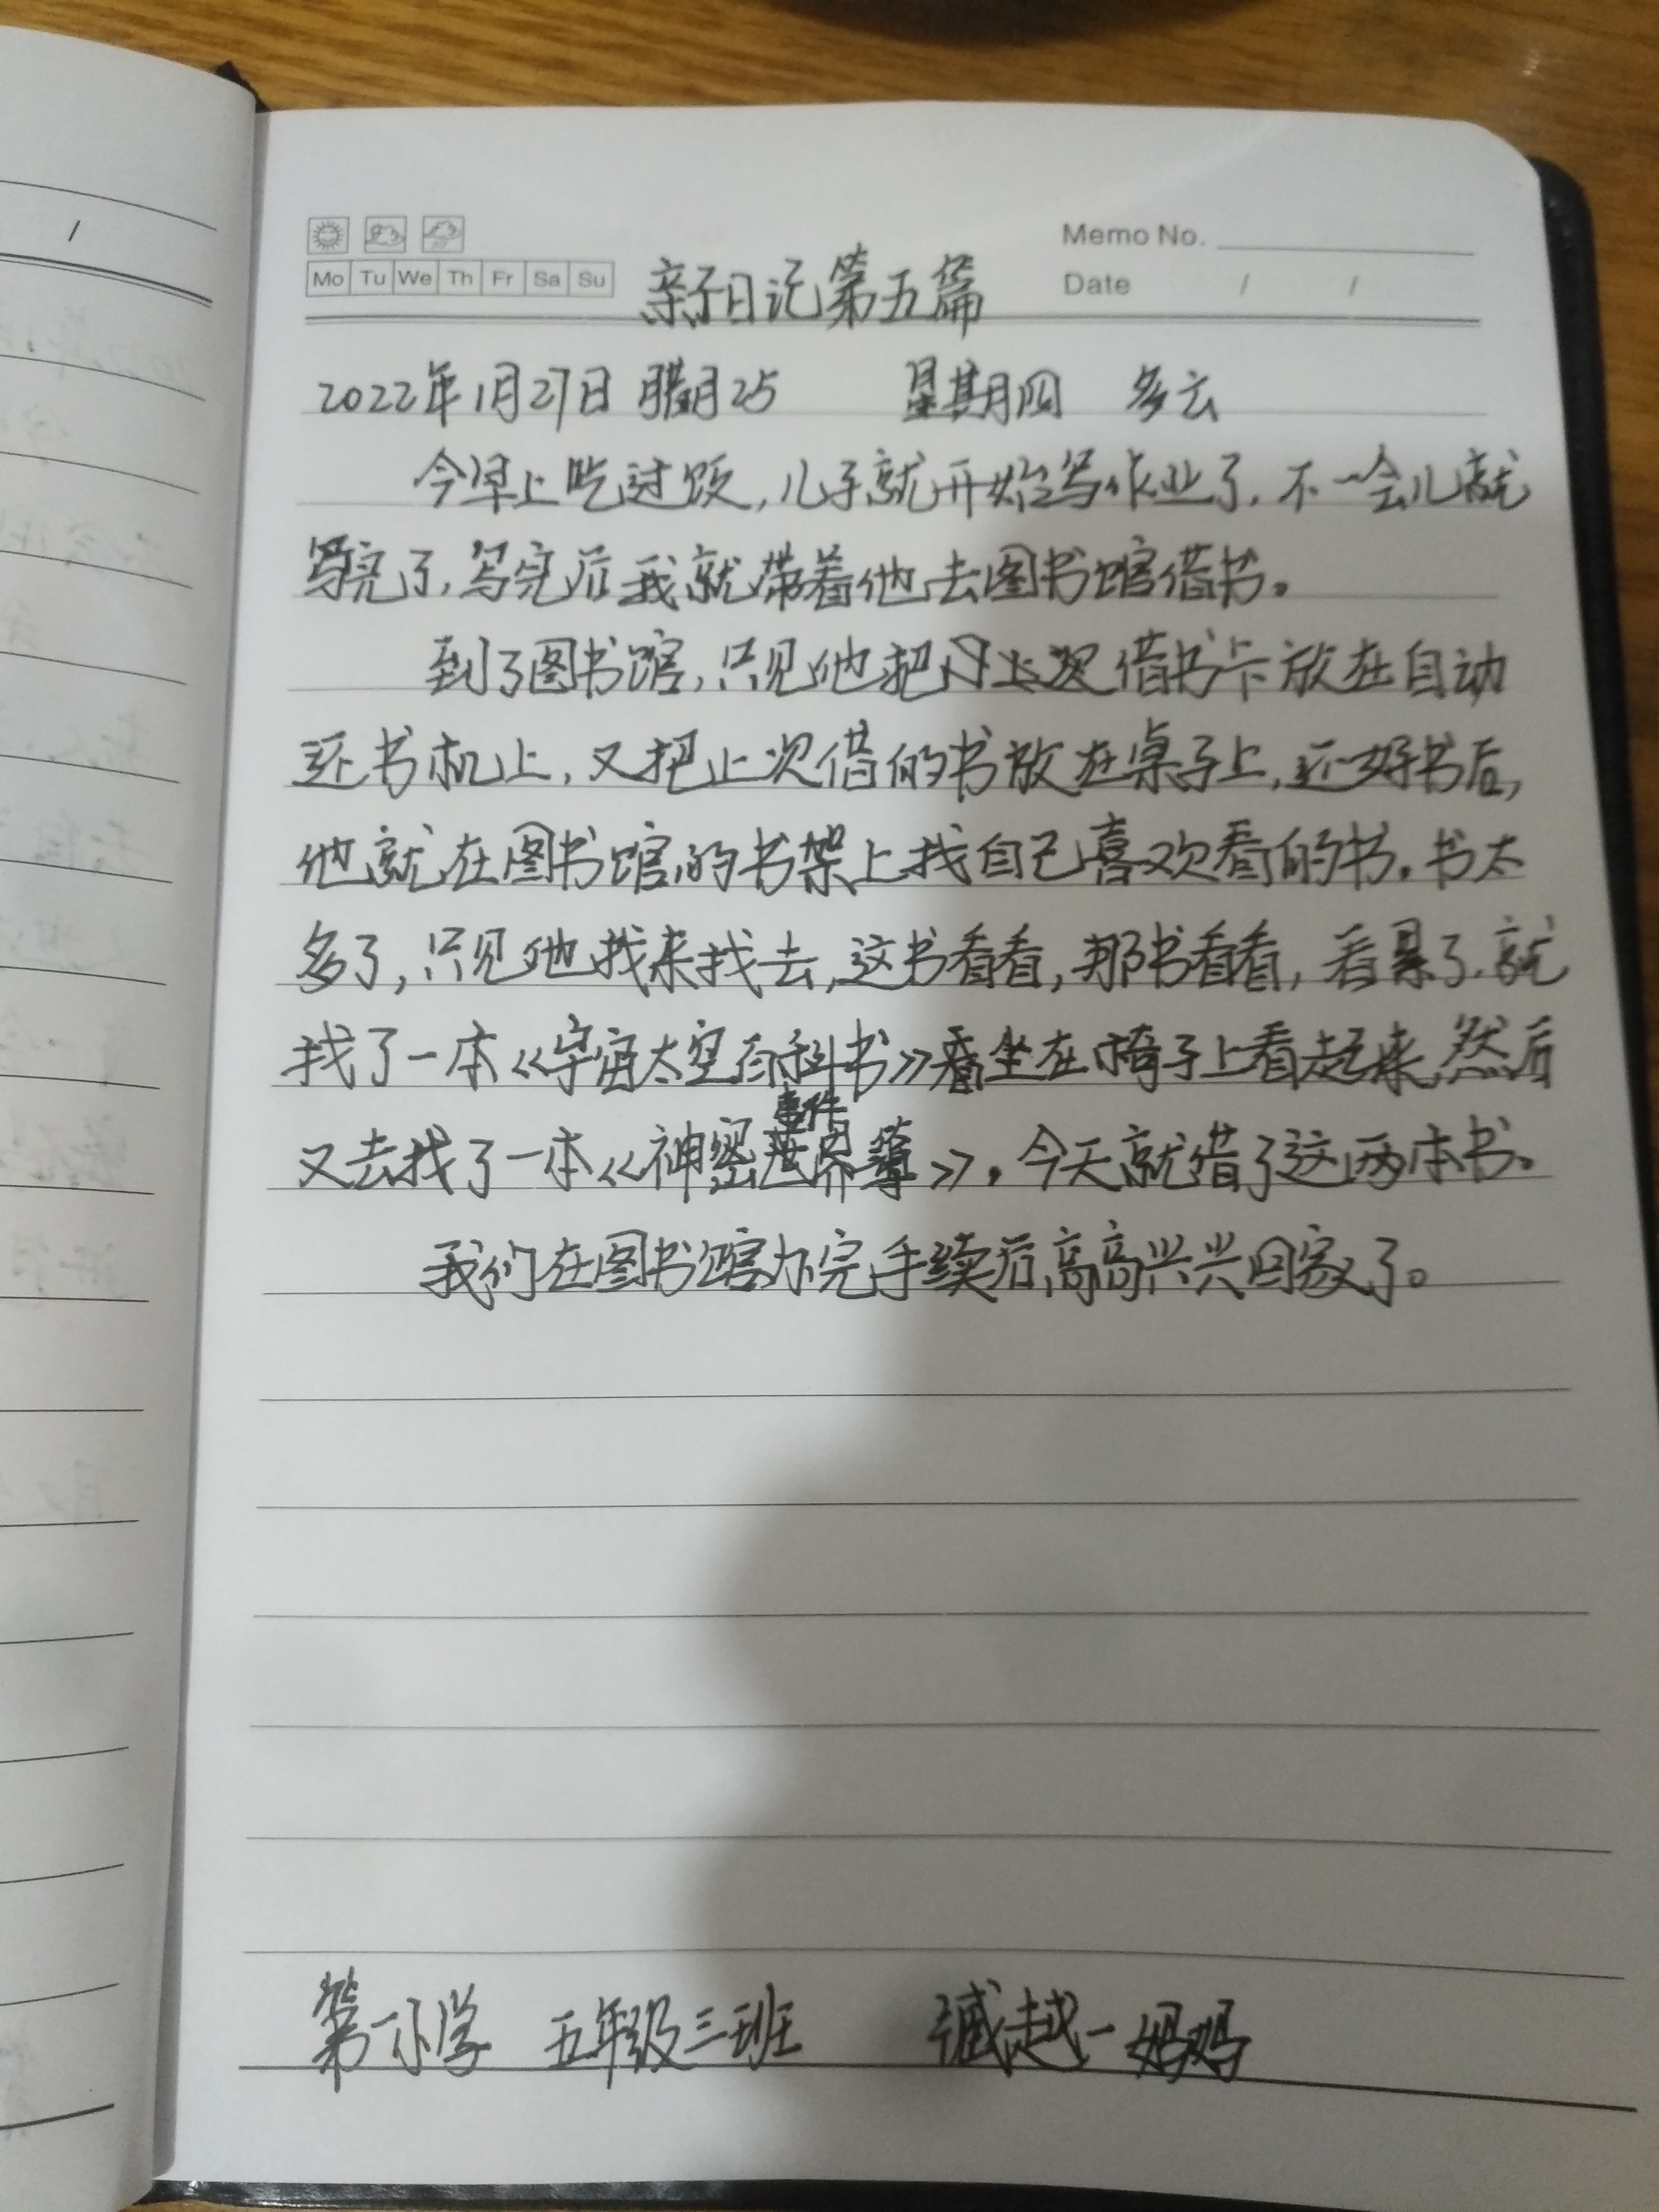 Memo No.
Mo Tu We Th Fr Sa Su
Date / /
亲子日记第五篇
2022年1月27日 腊月25 星期四 多云
今早上吃过饭,儿子就开始写作业了,不一会儿就
写完了,写完后我就带着他去图书馆借书。
到了图书馆,只见他把上次借书卡放在自动
还书机上,又把上次借的书放在桌子上,还好书后,
他就在图书馆的书架上找自己喜欢看的书。书太
多了,只见他找来找去,这书看看,那书看看,看累了,就
找了一本《宇宙太空百科书》坐在椅子上看起来,然后
又去找了一本《神密事件簿》。今天就借了这两本书。
我们在图书馆办完手续后,高高兴兴回家了。
第一小学 五年级三班 越一妈妈
/